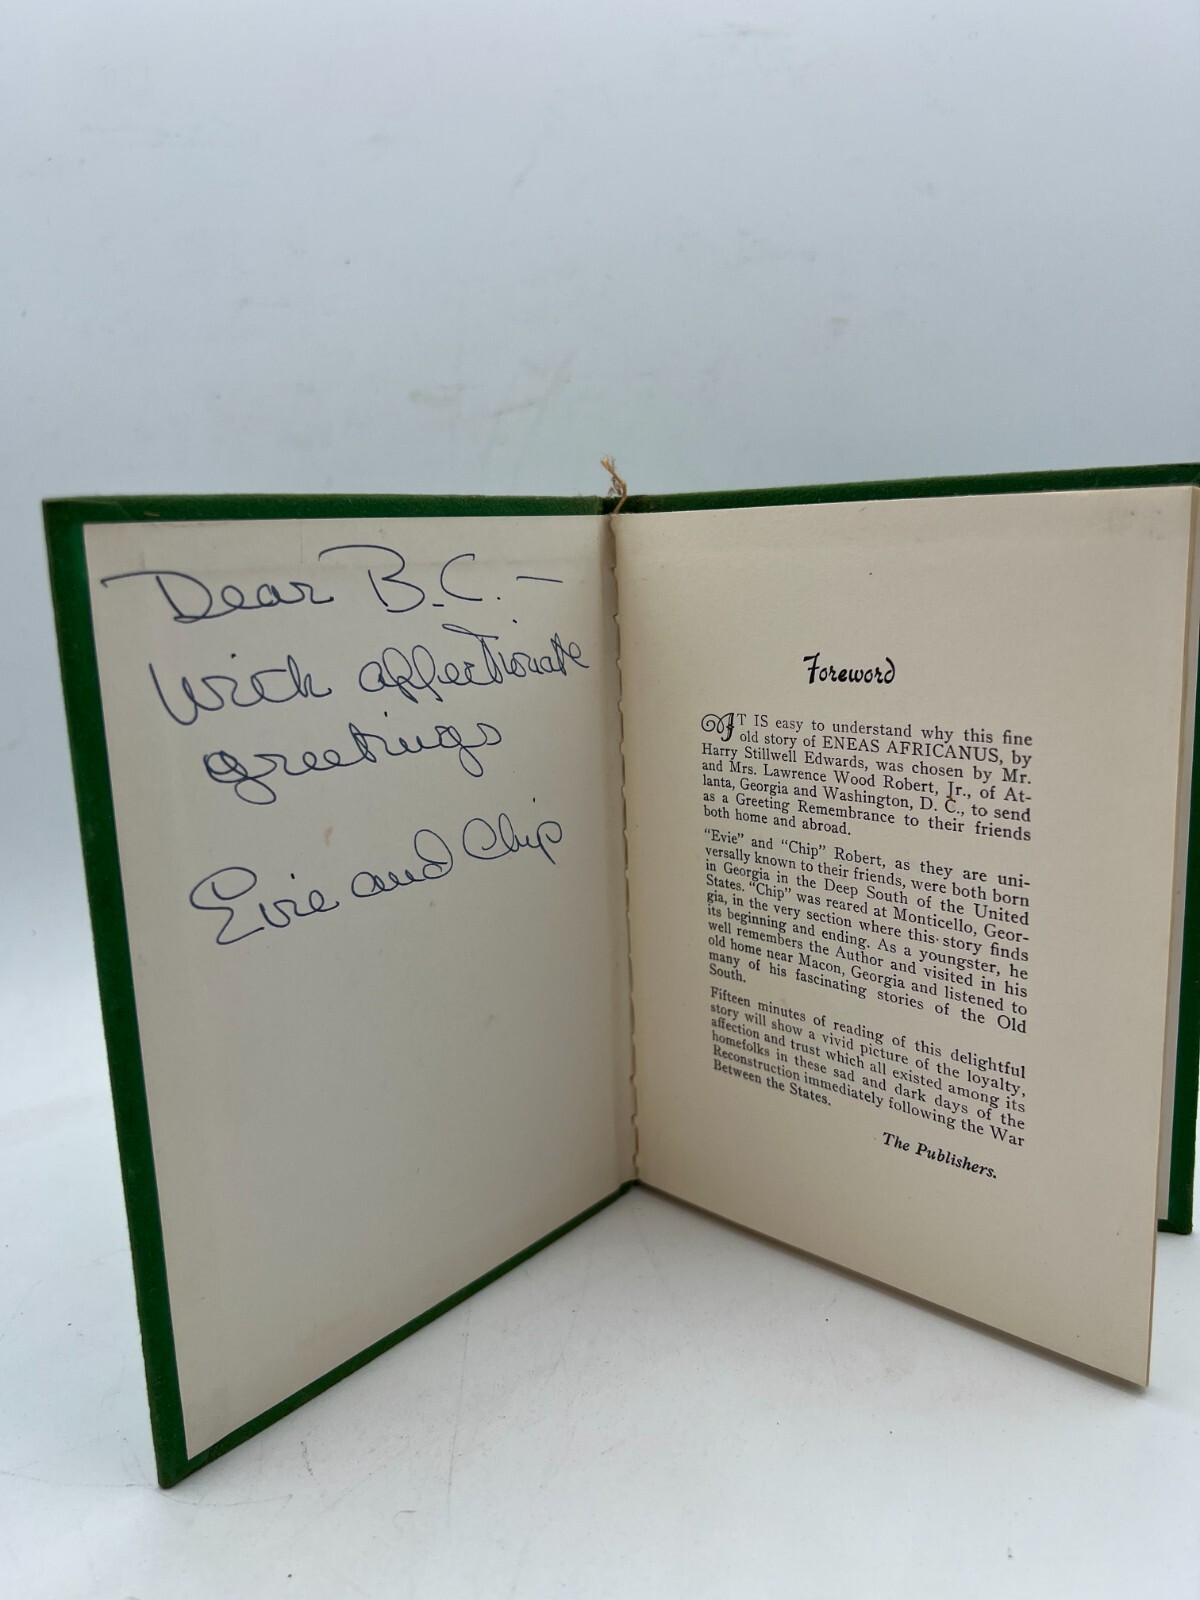 Dear B.C. –
With affectionate
greetings
Evie and Chip
Foreword
IT IS easy to understand why this fine
old story of ENEAS AFRICANUS, by
Harry Stillwell Edwards, was chosen by Mr.
and Mrs. Lawrence Wood Robert, Jr., of At-
lanta, Georgia and Washington, D. C., to send
as a Greeting Remembrance to their friends
both home and abroad.
"Evie" and "Chip" Robert, as they are uni-
versally known to their friends, were both born
in Georgia in the Deep South of the United
States. "Chip" was reared at Monticello, Geor-
gia, in the very section where this story finds
its beginning and ending. As a youngster, he
well remembers the Author and visited in his
old home near Macon, Georgia and listened to
many of his fascinating stories of the Old
South.
Fifteen minutes of reading of this delightful
story will show a vivid picture of the loyalty,
affection and trust which all existed among its
homefolks in these sad and dark days of the
Reconstruction immediately following the War
Between the States.
The Publishers.